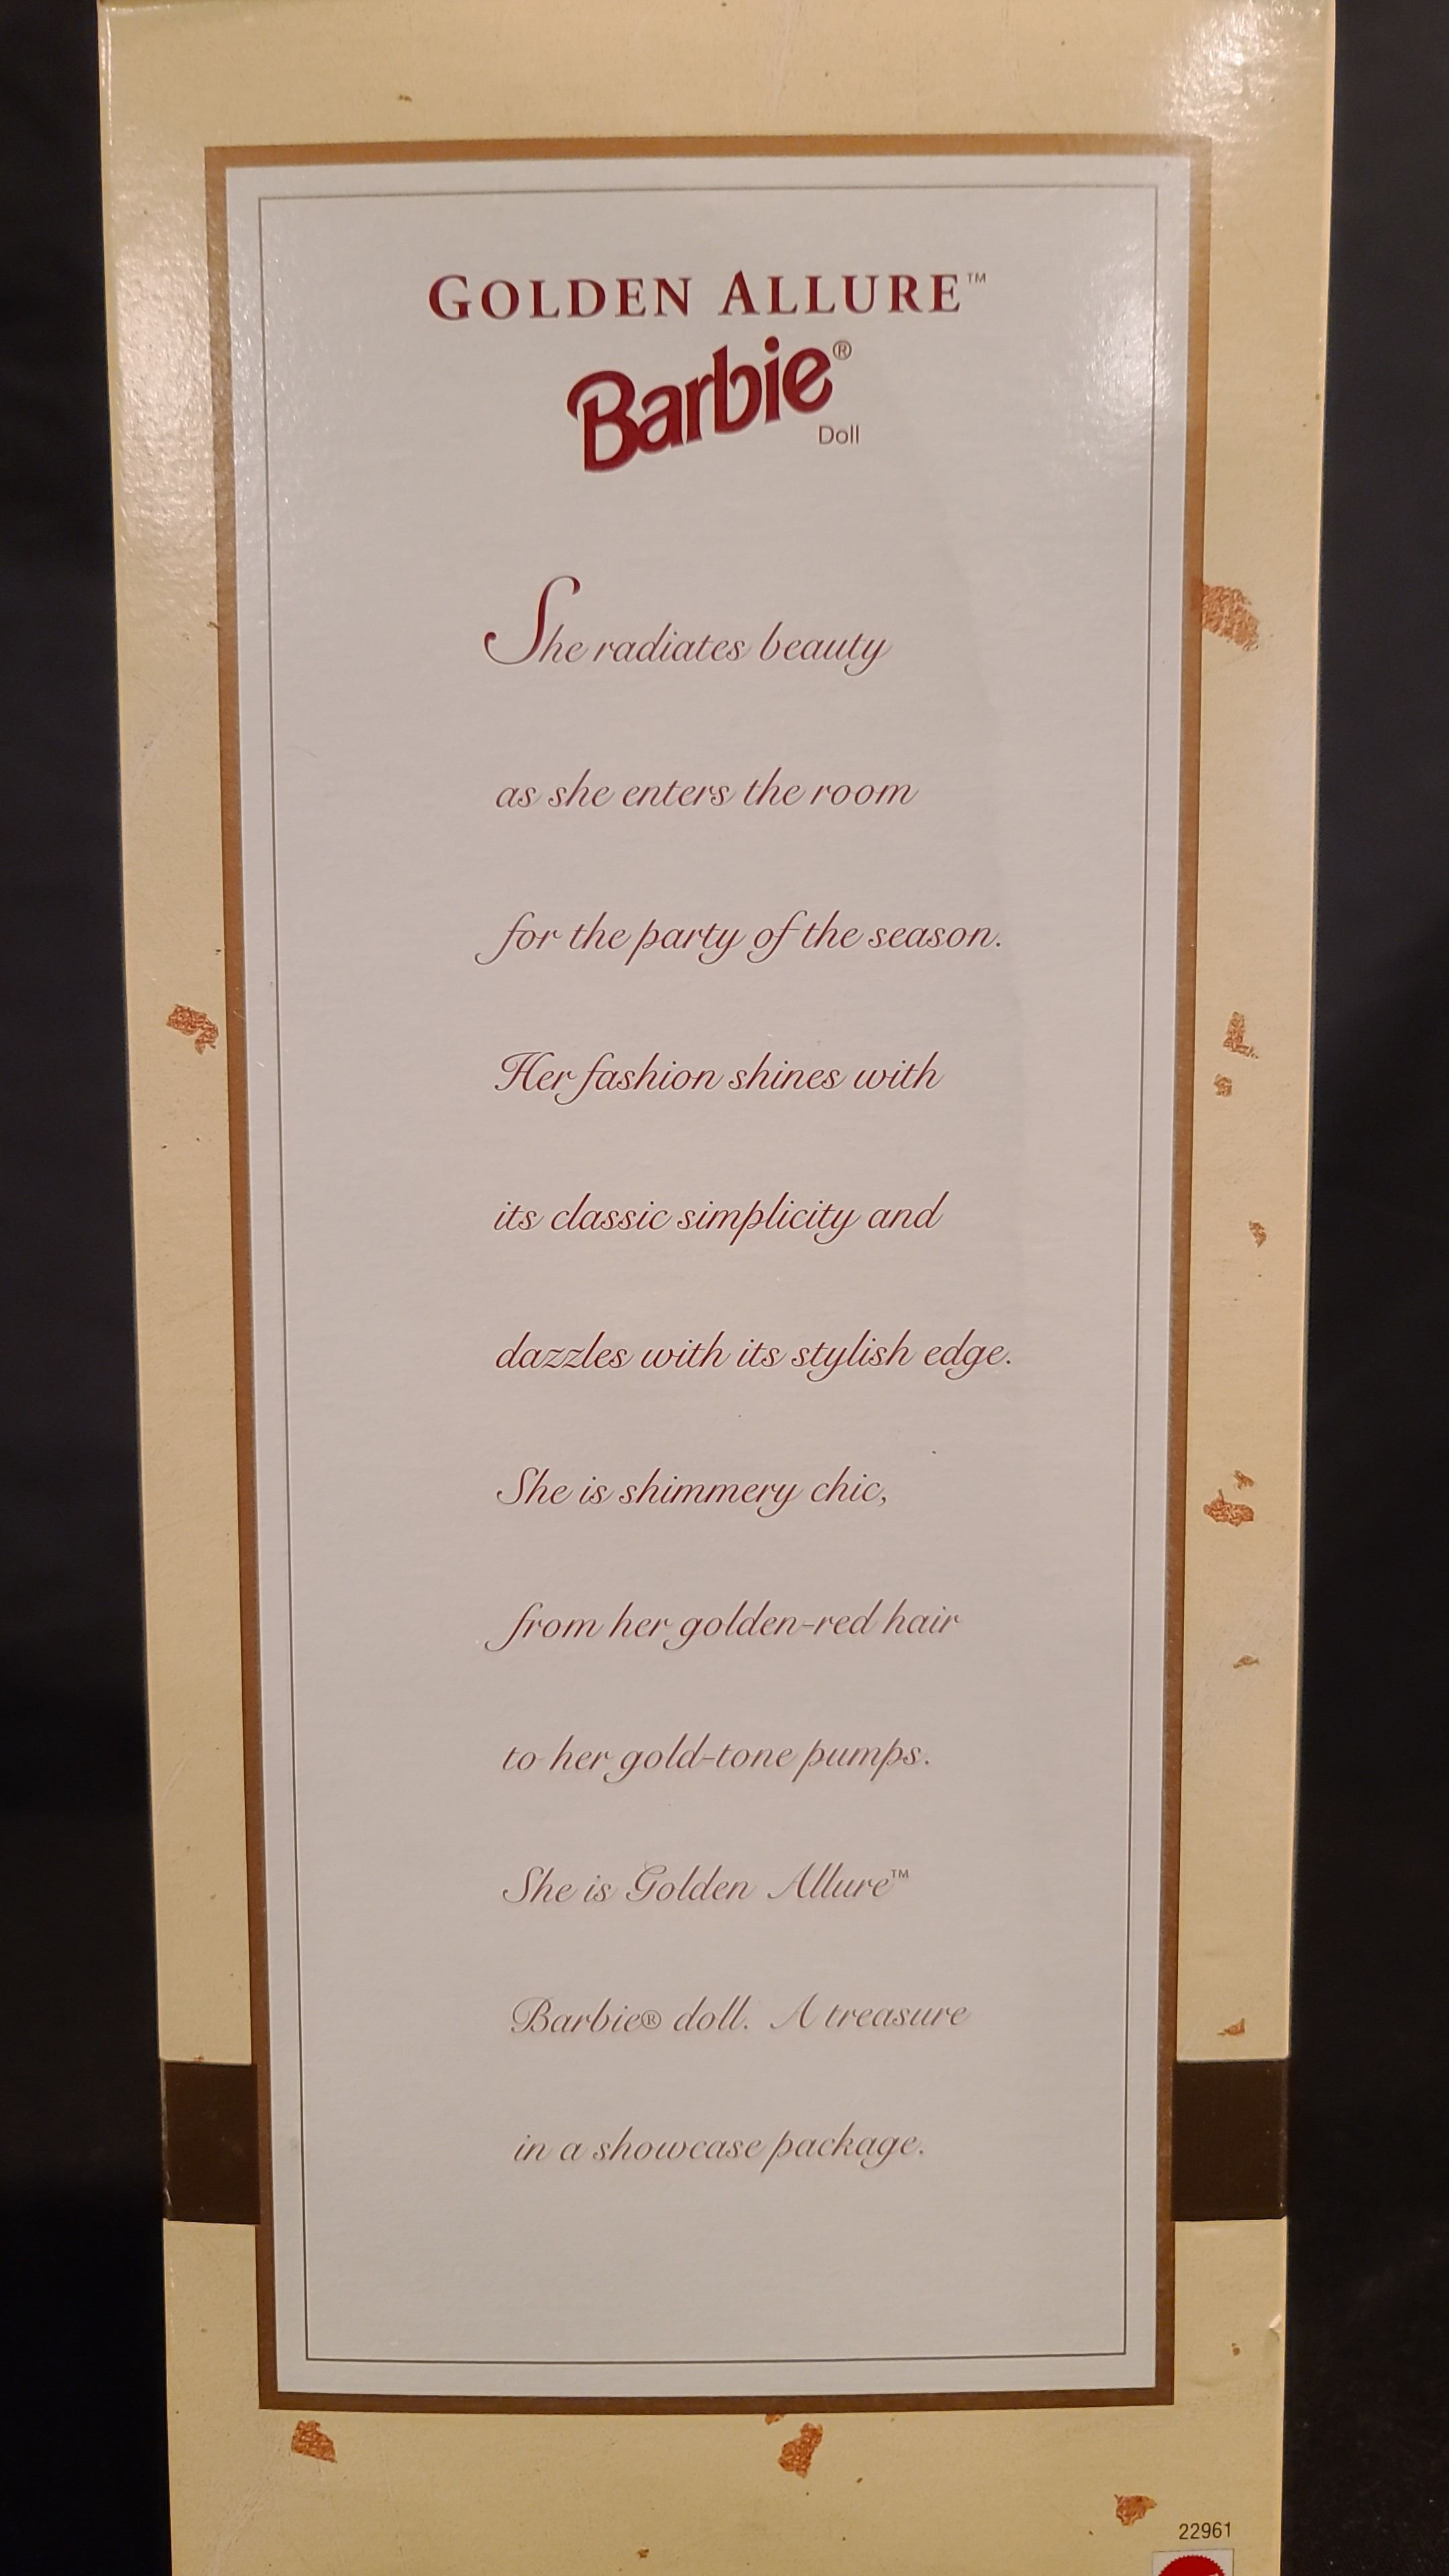 GOLDEN ALLURE™
Barbie®
Doll
She radiates beauty
as she enters the room
for the party of the season.
Her fashion shines with
its classic simplicity and
dazzles with its stylish edge.
She is shimmery chic,
from her golden-red hair
to her gold-tone pumps.
She is Golden Allure™
Barbie® doll. A treasure
in a showcase package.
22961